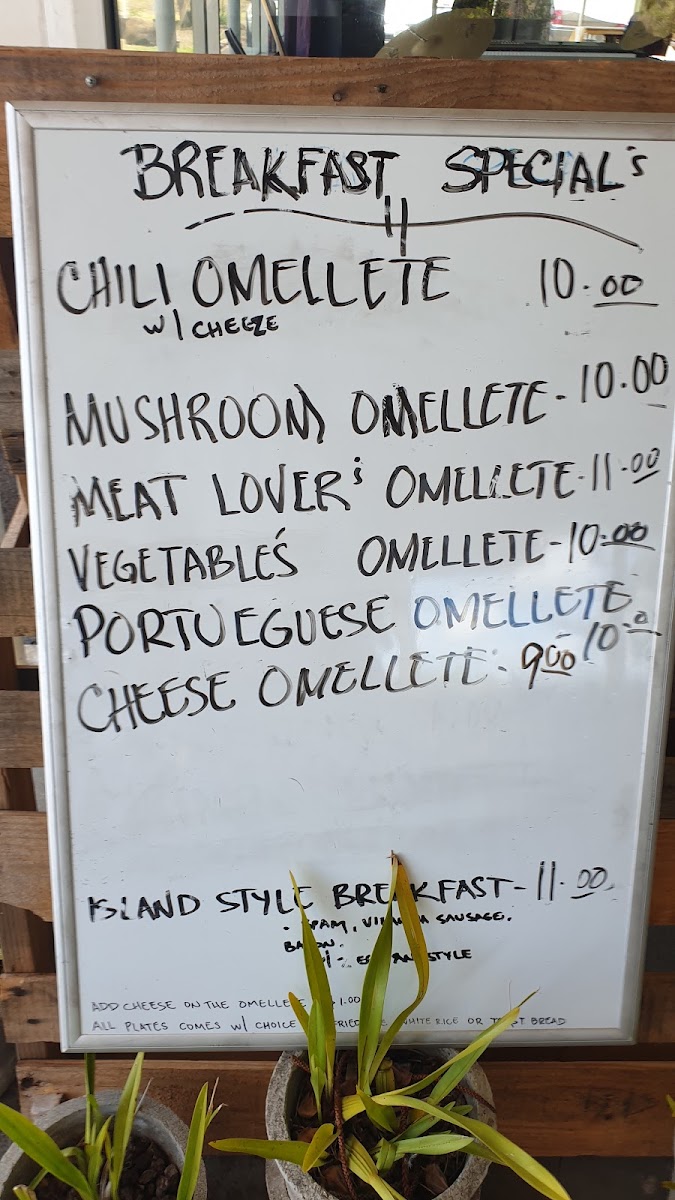 BREAKFAST SPECIAL's
CHILI OMELLETE 10.00
w/ CHEEZE
MUSHROOM OMELLETE - 10.00
MEAT LOVER's OMELLETE - 11.00
VEGETABLE'S OMELLETE - 10.00
PORTUEGUESE OMELLETE 10.0
CHEESE OMELLETE - 9.00
ISLAND STYLE BREAKFAST - 11.00
SPAM, SAUSAGE.
BACON.
STYLE
ADD CHEESE ON THE OMELLETE 1.00
ALL PLATES COMES w/ CHOICE FRIED WHITE RICE OR BREAD